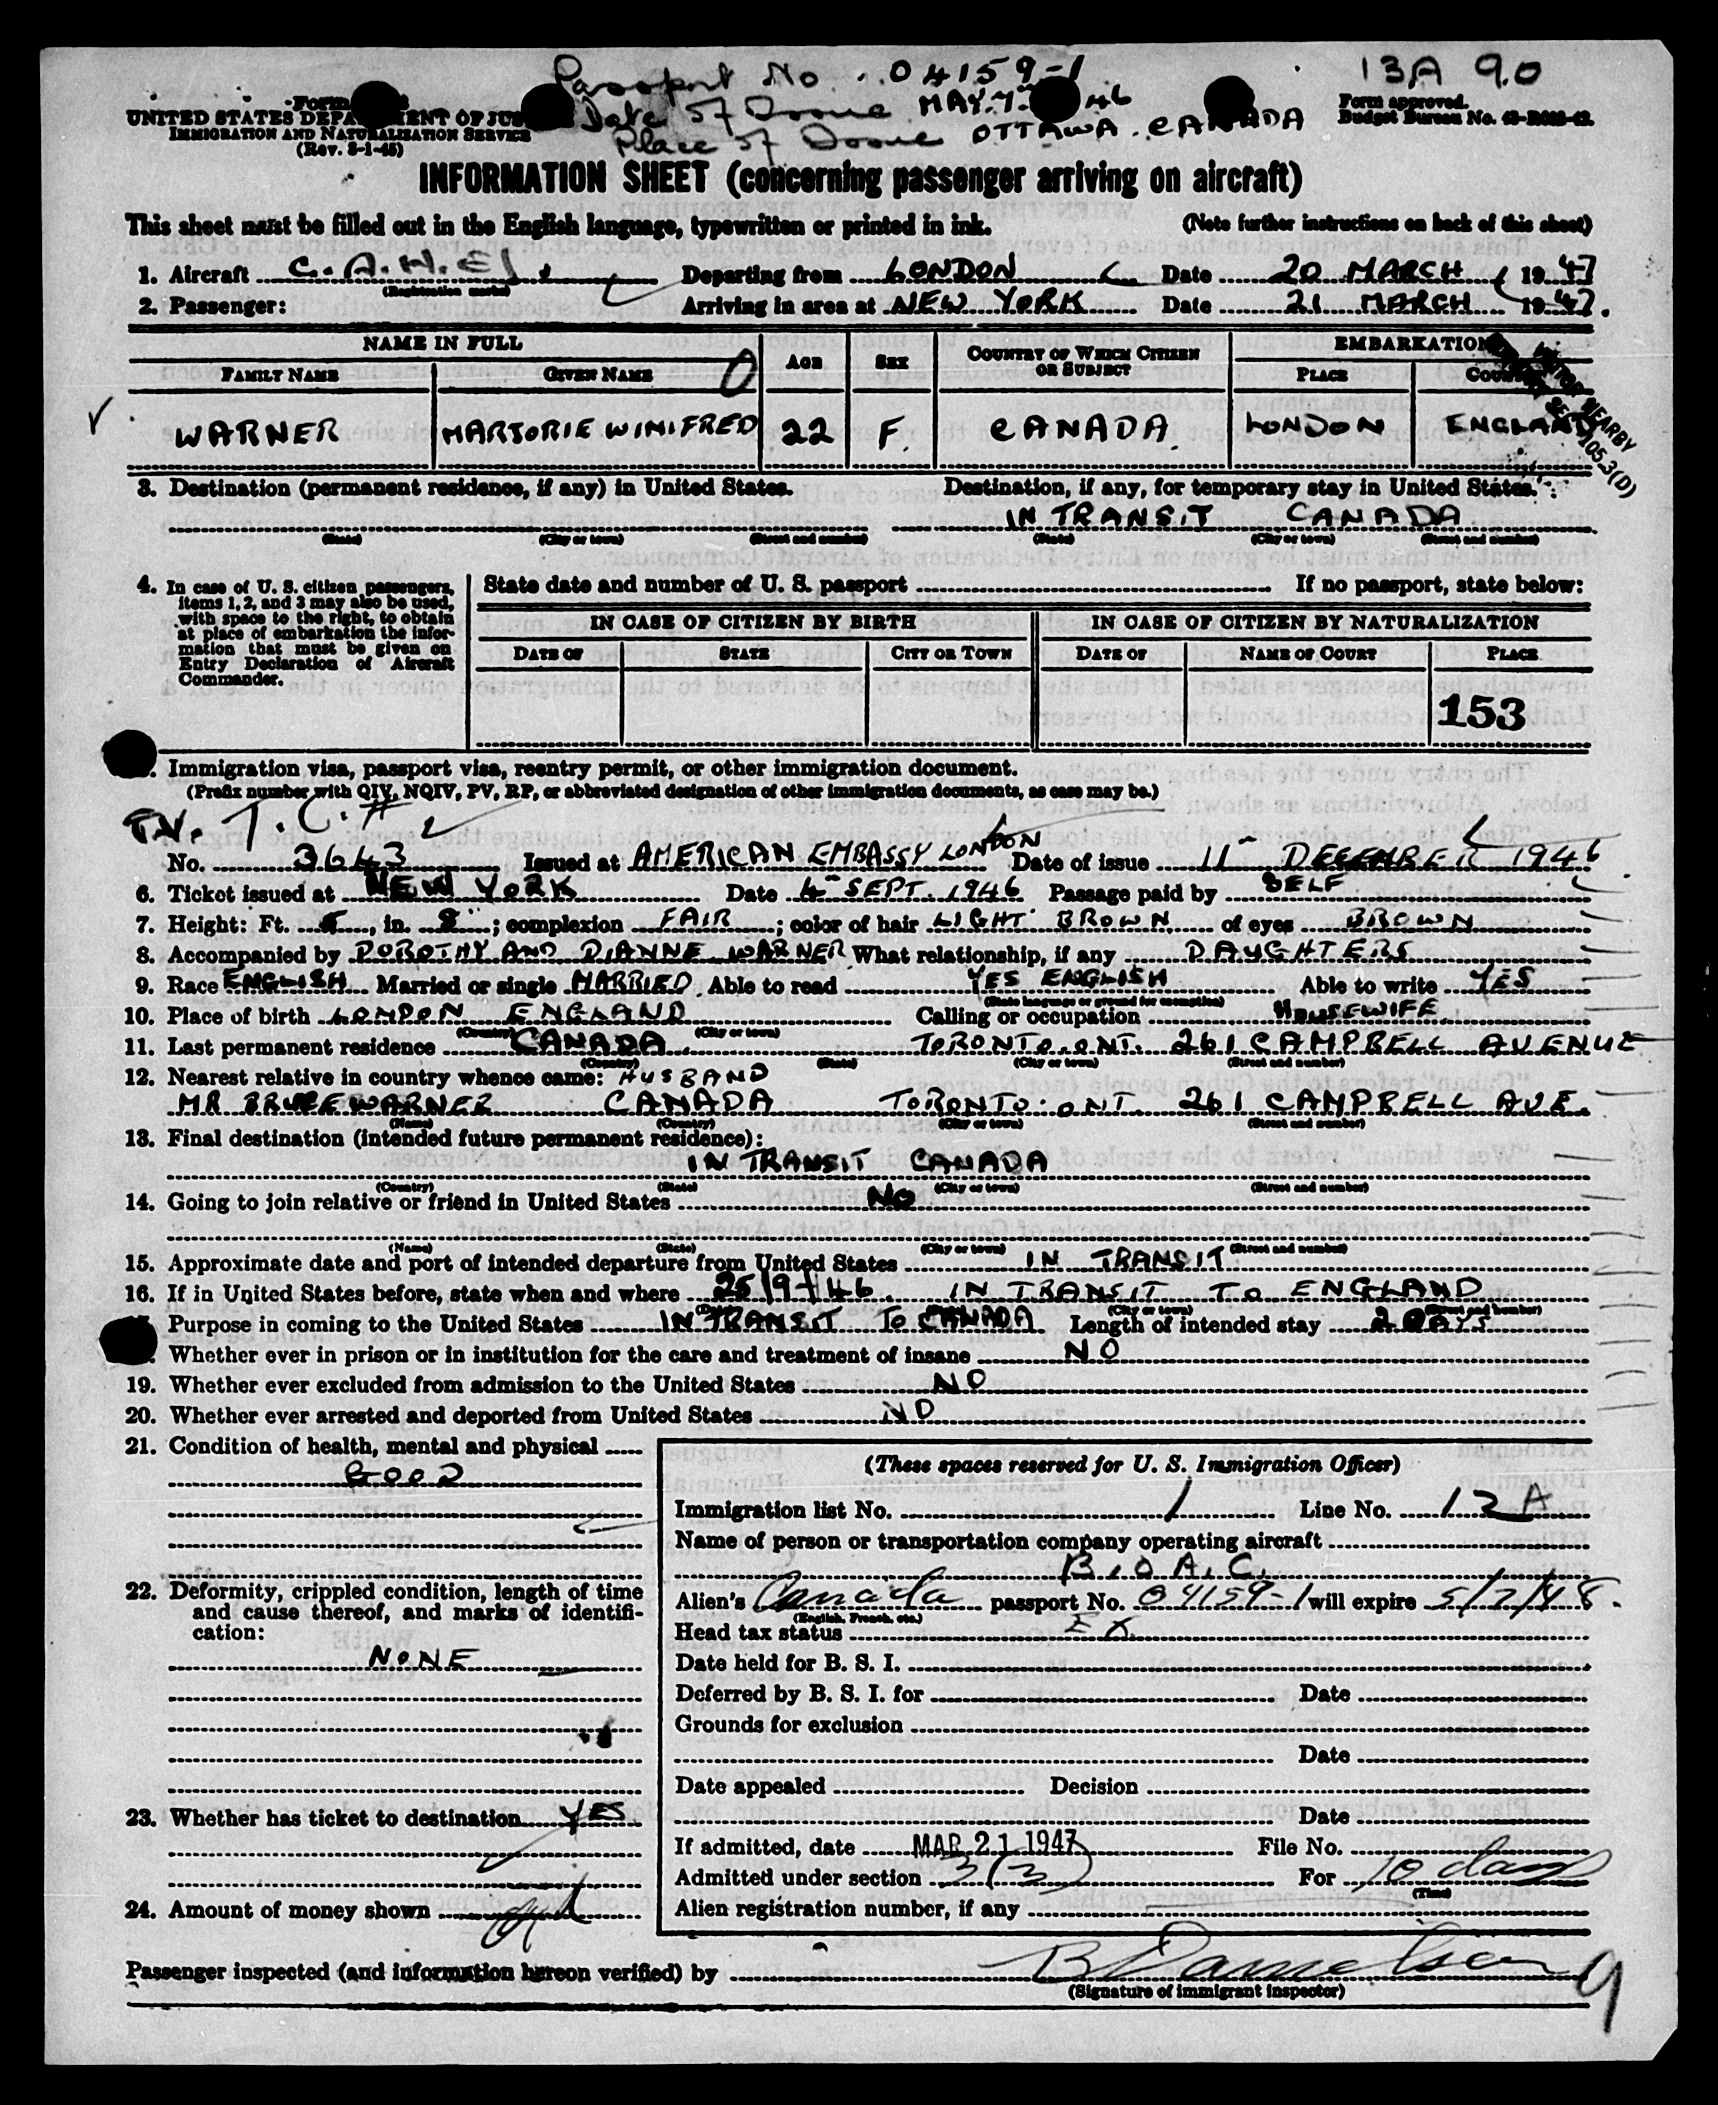 Passport No. 04159-1 13A 90
Date of Issue MAY. 7. 46
Place of Issue OTTAWA. CANADA
Form
UNITED STATES DEPARTMENT OF JUSTICE
IMMIGRATION AND NATURALIZATION SERVICE
(Rev. 3-1-45)
Form approved.
Budget Bureau No.
INFORMATION SHEET (concerning passenger arriving on aircraft)
This sheet must be filled out in the English language, typewritten or printed in ink. (Note further instructions on back of this sheet)
1. Aircraft Departing from LONDON Date 20 MARCH 1947
(Registration marks)
2. Passenger: Arriving in area at NEW YORK Date 21 MARCH 1947.
NAME IN FULL AGE SEX COUNTRY OF WHICH CITIZEN OR SUBJECT EMBARKATION
FAMILY NAME GIVEN NAME PLACE COUNTRY
WARNER MARJORIE WINIFRED 22 F. CANADA LONDON ENGLAND
3. Destination (permanent residence, if any) in United States. Destination, if any, for temporary stay in United States.
IN TRANSIT CANADA
(State) (City or town) (Street and number) (State) (City or town) (Street and number)
4. In case of U. S. citizen passengers, items 1, 2, and 3 may also be used, with space to the right, to obtain at place of embarkation the information that must be given on Entry Declaration of Aircraft Commander.
State date and number of U. S. passport If no passport, state below:
IN CASE OF CITIZEN BY BIRTH IN CASE OF CITIZEN BY NATURALIZATION
DATE OF STATE CITY OR TOWN DATE OF NAME OF COURT PLACE
153
Immigration visa, passport visa, reentry permit, or other immigration document.
(Prefix number with QIV, NQIV, PV, RP, or abbreviated designation of other immigration documents, as case may be.)
T.V. T.C.#
No. 3643 Issued at AMERICAN EMBASSY LONDON Date of issue 11 DECEMBER 1946
6. Ticket issued at NEW YORK Date 4 SEPT. 1946 Passage paid by SELF
7. Height: Ft. 5, in. 8; complexion FAIR; color of hair LIGHT BROWN of eyes BROWN
8. Accompanied by DOROTHY AND DIANNE WARNER What relationship, if any DAUGHTERS
9. Race ENGLISH Married or single MARRIED. Able to read YES ENGLISH Able to write YES
(State language or ground for exemption)
10. Place of birth LONDON ENGLAND Calling or occupation HOUSEWIFE
(Country) (City or town)
11. Last permanent residence CANADA TORONTO. ONT. 261 CAMPBELL AVENUE
(Country) (State) (City or town) (Street and number)
12. Nearest relative in country whence came: HUSBAND
MR BRUCE WARNER CANADA TORONTO. ONT. 261 CAMPBELL AVE.
(Name) (Country) (City or town) (Street and number)
13. Final destination (intended future permanent residence):
IN TRANSIT CANADA
(Country) (State) (City or town) (Street and number)
14. Going to join relative or friend in United States NO
(Name) (State) (City or town) (Street and number)
15. Approximate date and port of intended departure from United States IN TRANSIT
16. If in United States before, state when and where 25/9/46. IN TRANSIT TO ENGLAND
(Date) (City or town) (Street and number)
Purpose in coming to the United States IN TRANSIT TO CANADA Length of intended stay 2 DAYS
Whether ever in prison or in institution for the care and treatment of insane NO
19. Whether ever excluded from admission to the United States NO
20. Whether ever arrested and deported from United States NO
21. Condition of health, mental and physical
GOOD
22. Deformity, crippled condition, length of time and cause thereof, and marks of identification:
NONE
23. Whether has ticket to destination YES
24. Amount of money shown
(These spaces reserved for U. S. Immigration Officer)
Immigration list No. 1 Line No. 13A
Name of person or transportation company operating aircraft
B.O.A.C.
Alien's Canada passport No. 04159-1 will expire 5/7/48.
(English, French, etc.)
Head tax status EX.
Date held for B. S. I.
Deferred by B. S. I. for Date
Grounds for exclusion
Date
Date appealed Decision
Date
If admitted, date MAR 21 1947 File No.
Admitted under section 3(3) For 10 days
(Time)
Alien registration number, if any
Passenger inspected (and information hereon verified) by B Danielson
(Signature of immigrant inspector)
9